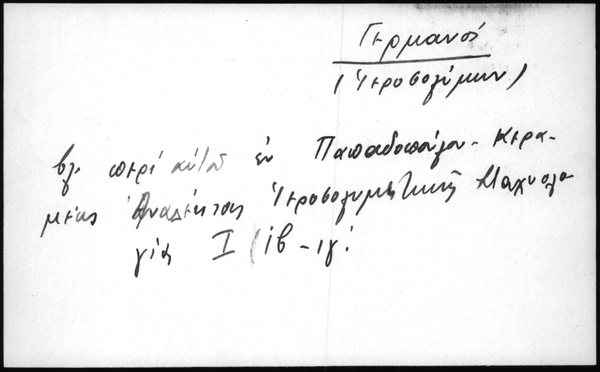 Γερμανός
(Ἱεροσολύμων)
βλ. περί αὐτοῦ ἐν Παπαδοπούλου - Κερα-
μέως Ἀνάλεκτα Ἱεροσολυμιτικῆς Σταχυολο
γίας I (ιβ - ιγ΄.